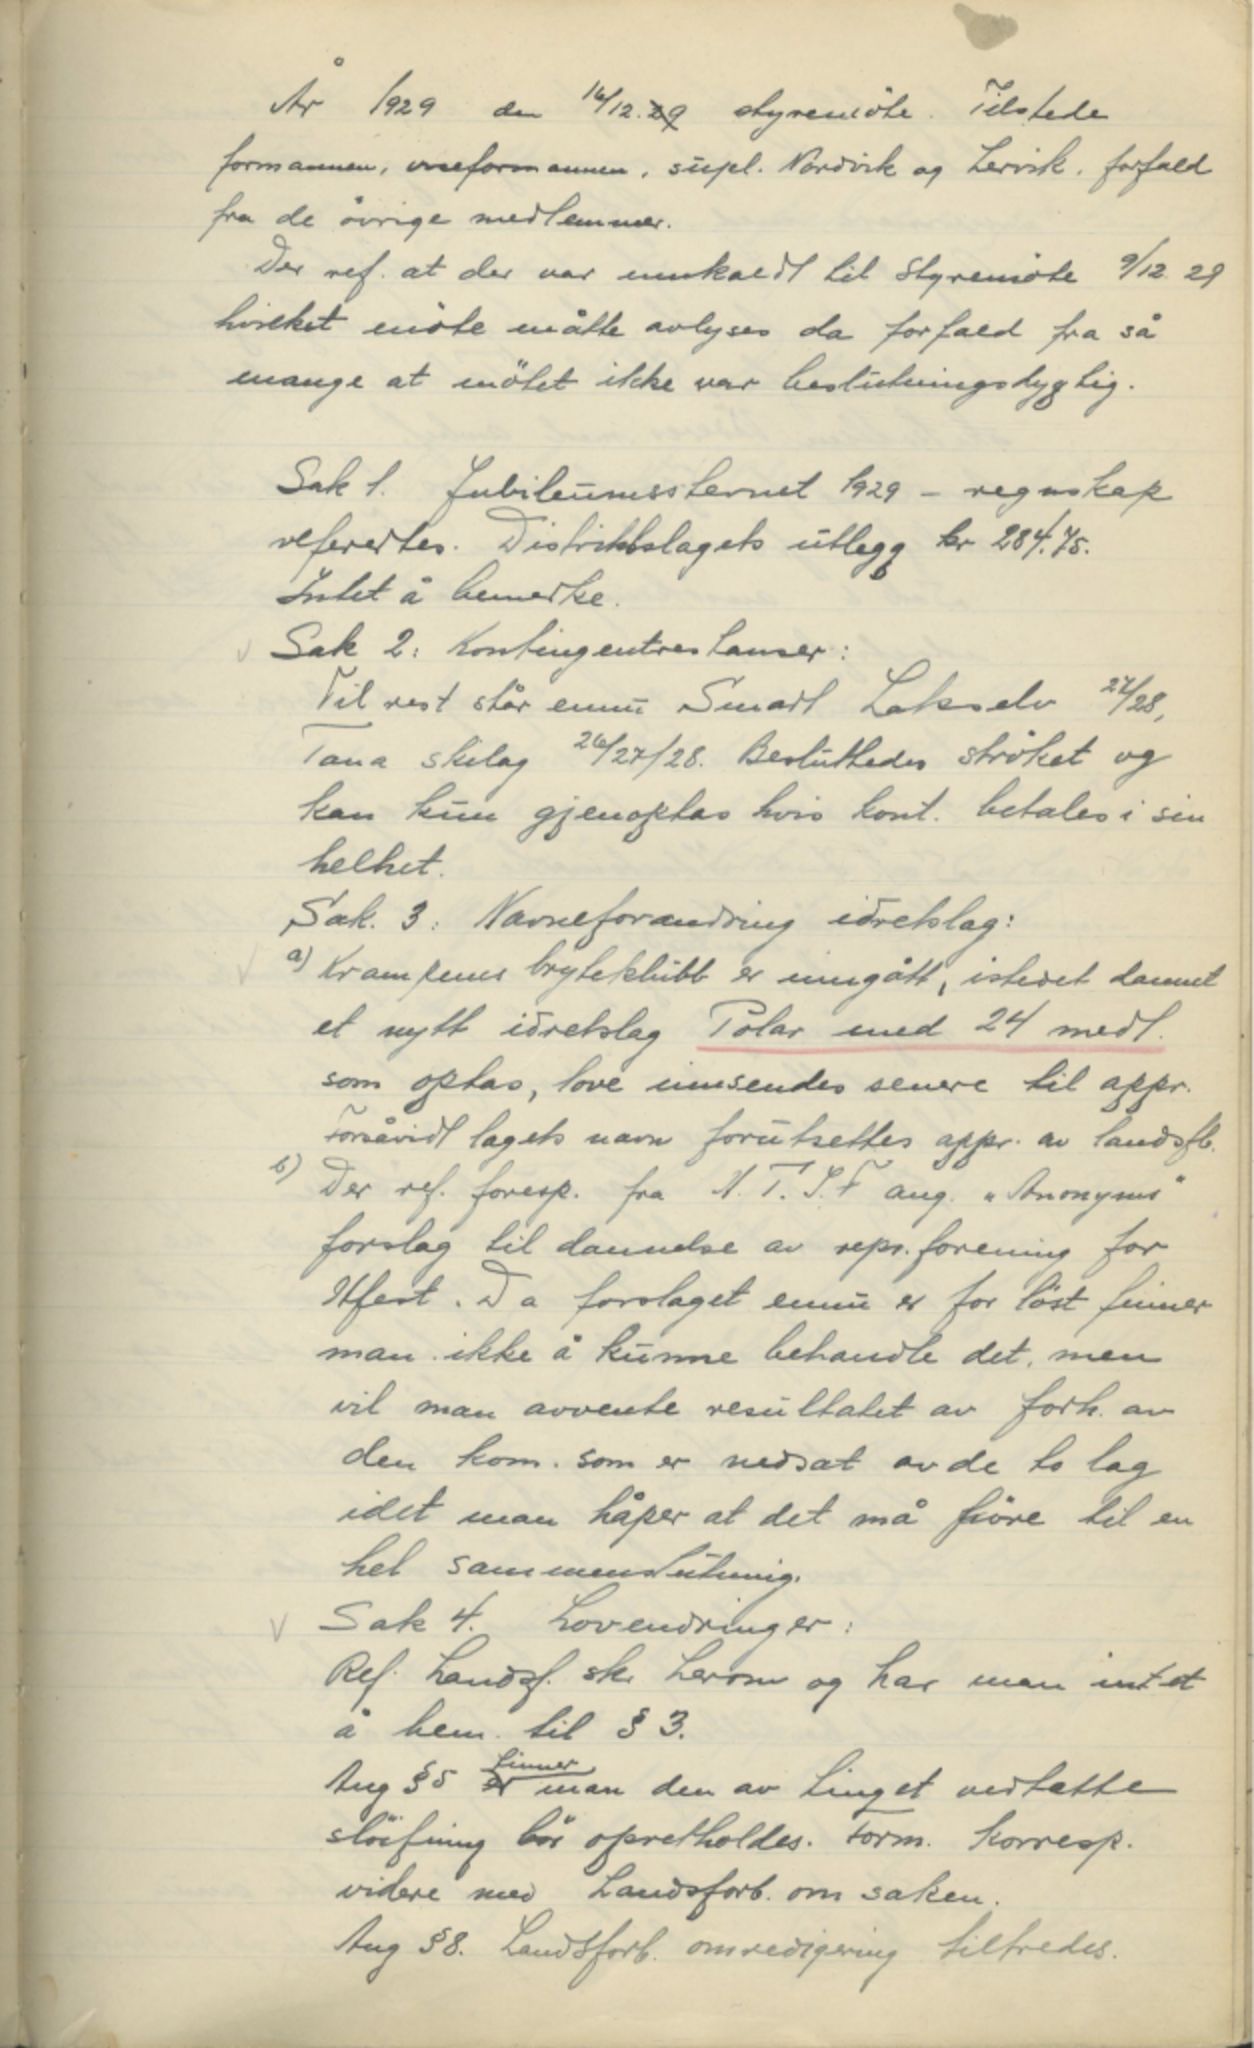 År 1929 den 16/12.29 styremöte. Tilstede
formannen, viseformannen, supl. Nordvik og Lervik, forfald
fra de övrige medlemmer.
Der ref. at der var innkaldt til Styremöte 9/12 29
hvilket möte måtte avlyses da forfald fra så
mange at mötet ikke var beslutningsdygtig.
Sak 1. Jubileumsstevnet 1929 – regnskap
refereres. Distriktslagets utlegg kr 284.75.
Intet å bemerke.
Sak 2: Kontingentrestanser:
Til rest står ennu Smart Lakselv 27/28,
Tana skilag 26/27/28. Besluttedes ströket og
kan kun gjenoptas hvis kont. betales i sin
helhet.
Sak. 3: Navneforandring idretslag:
a) Krampenes bryteklubb er inngått, istedet dannet
et nytt idretslag Polar med 24 medl.
som optas, love innsendes senere til appr.
Forsåvidt lagets navn forutsettes appr. av landsfb.
b) Der ref. foresp. fra N.T.I.F ang. "Anonyms"
forslag til dannelse av repr. forening for
Hfest. Da forslaget ennu er for löst finner
man ikke å kunne behandle det, men
vil man avvente resultatet av forh. av
den kom. som er nedsat av de to lag
idet man håper at det må före til en
hel sammenslutning.
Sak 4. Lovendringer:
Ref. Landsf. skr herom og har man intet
å bem. til § 3.
Ang § 5 finner man den av tinget vedtatte
slöifning bör opretholdes. Form. korresp.
videre med Landsforb. om saken.
Ang § 8. Landsforb. omredigering tiltredes.